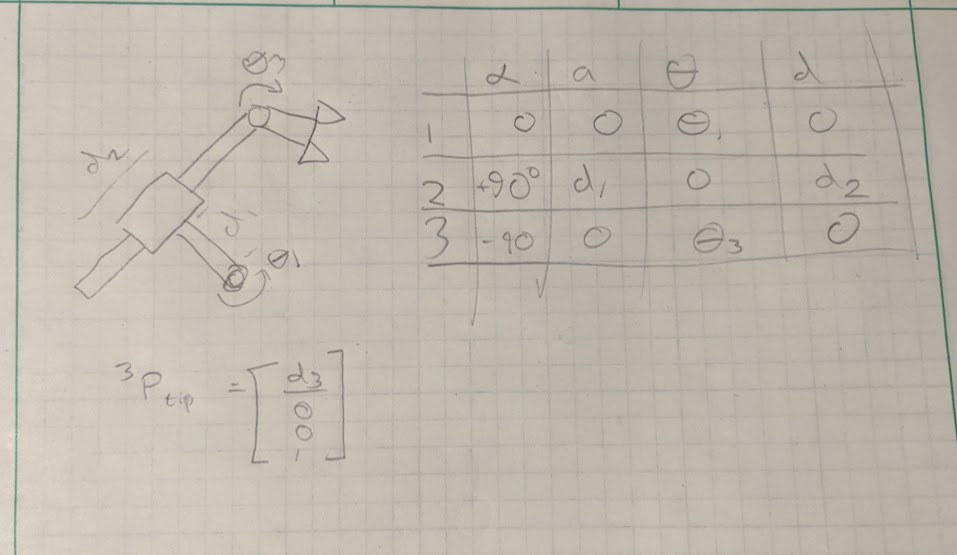 θ3
d2
d1
θ1
α a θ d
1 0 0 θ1 0
2 +90° d1 0 d2
3 -90 0 θ3 0
3Ptip = [d3
0
0
1]